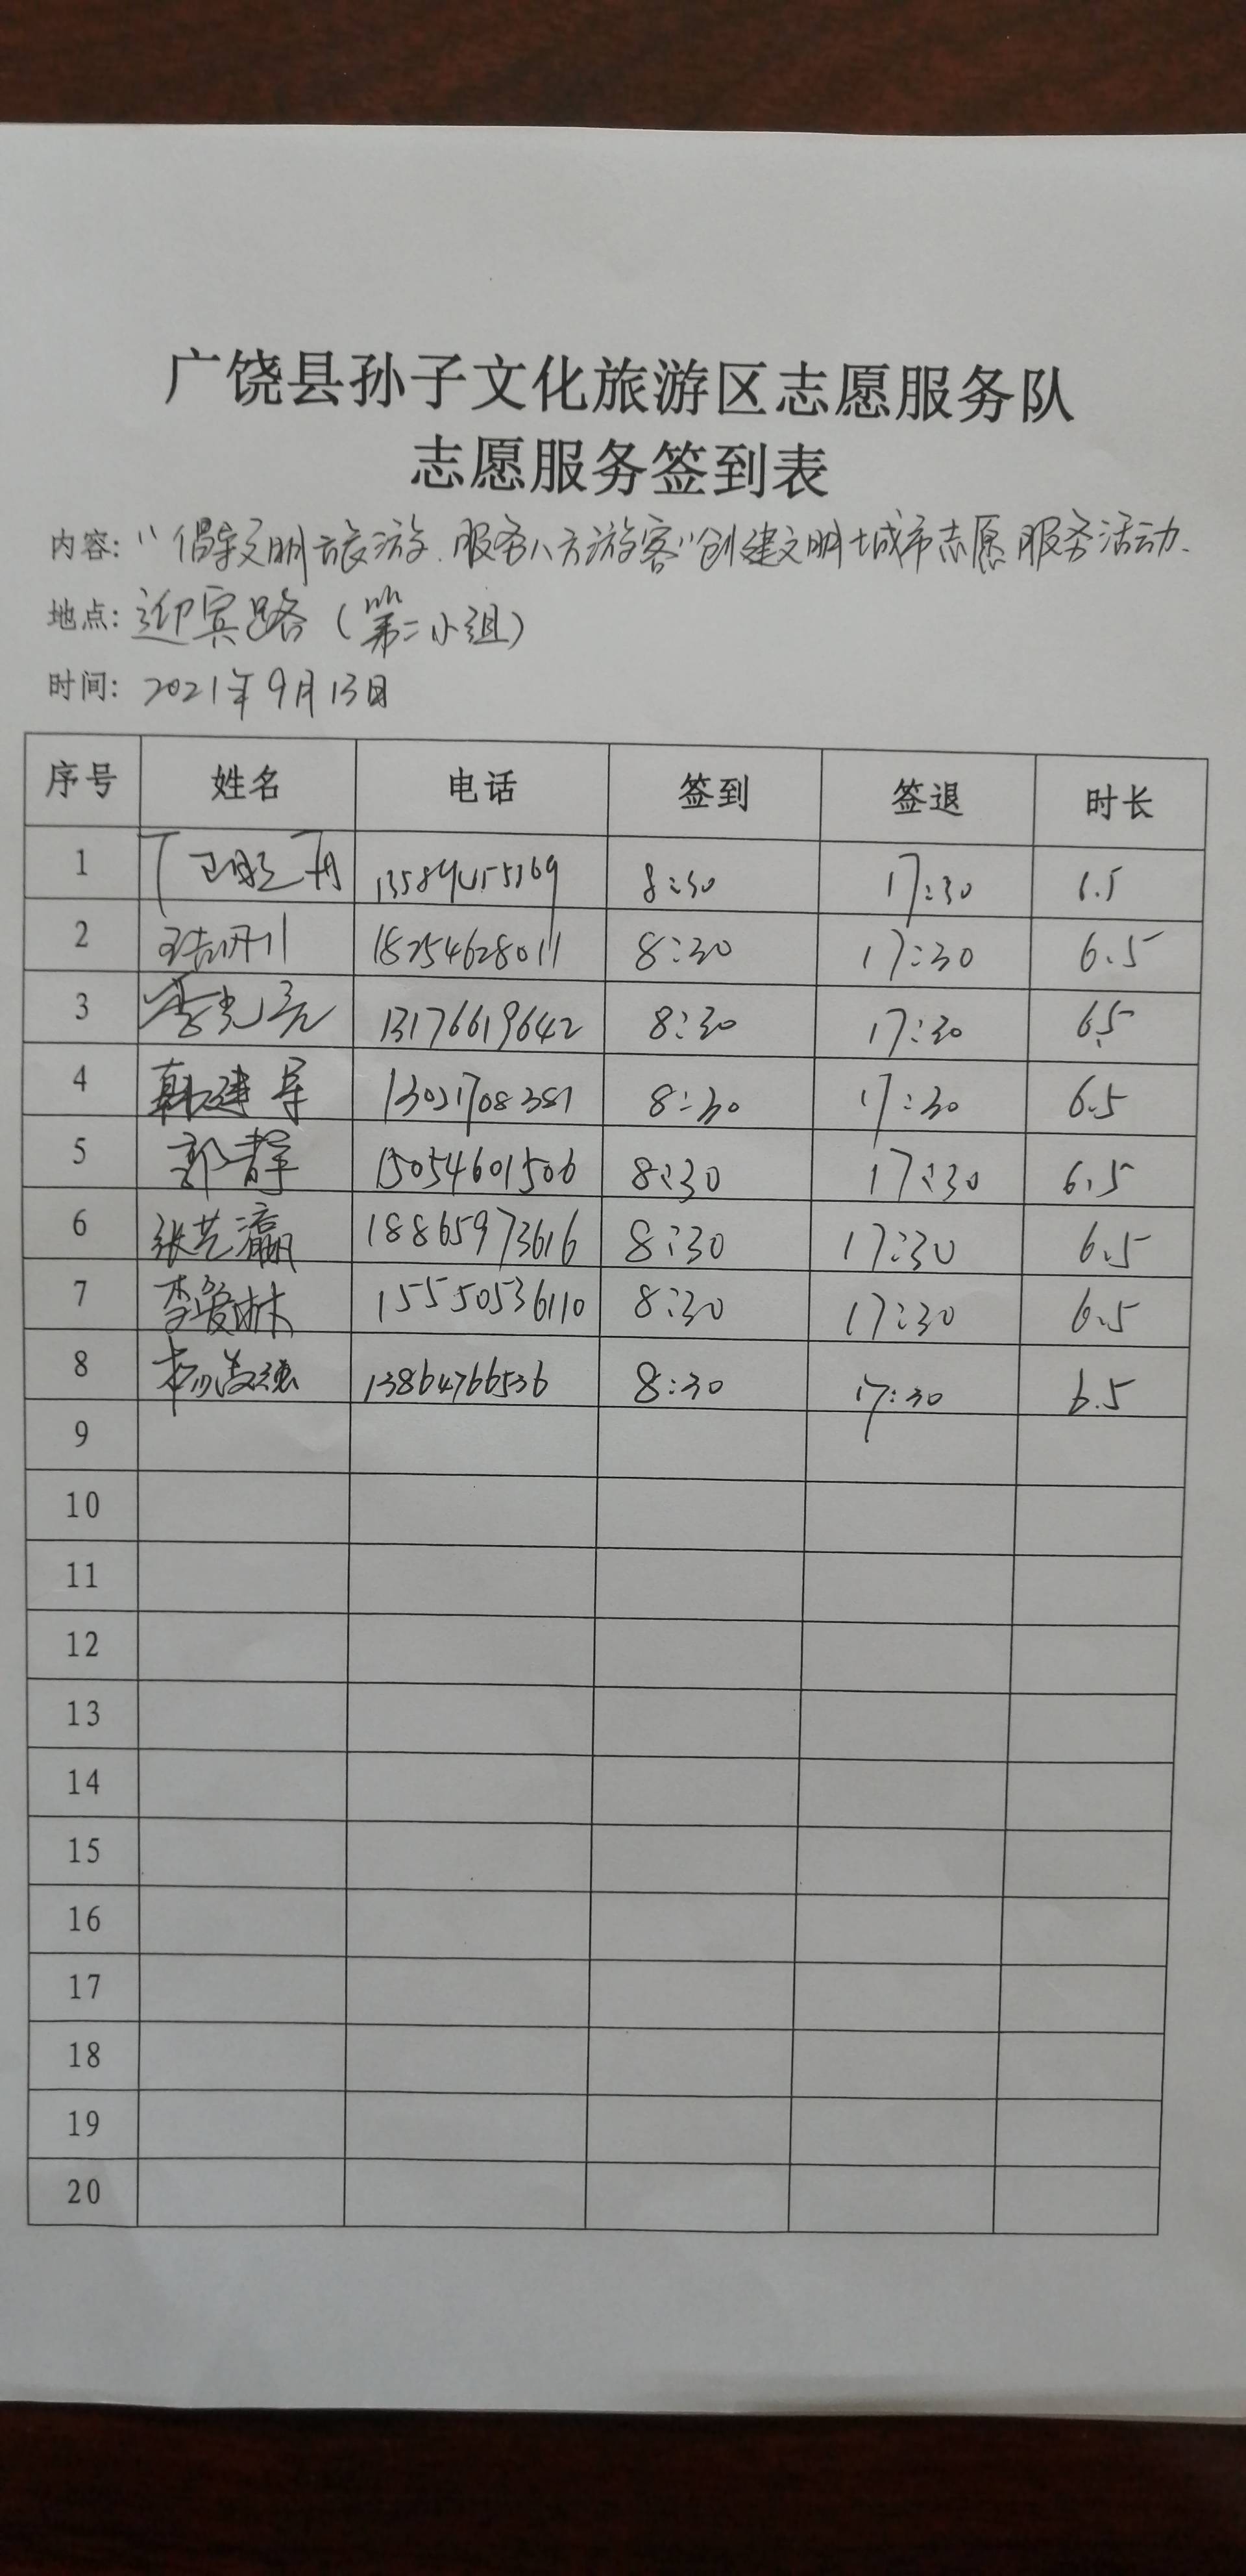 广饶县孙子文化旅游区志愿服务队
志愿服务签到表
内容："倡导文明旅游.服务八方游客"创建文明城市志愿服务活动.
地点：迎宾路（第二小组）
时间：2021年9月13日
序号 姓名 电话 签到 签退 时长
1 8:30 17:30 6.5
2 18254628011 8:30 17:30 6.5
3 李光亮 13176619642 8:30 17:30 6.5
4 韩建军 13021708381 8:30 17:30 6.5
5 郭静 15054601506 8:30 17:30 6.5
6 张艺瀛 18865973616 8:30 17:30 6.5
7 李爱琳 15550536110 8:30 17:30 6.5
8 13864766536 8:30 17:30 6.5
9
10
11
12
13
14
15
16
17
18
19
20